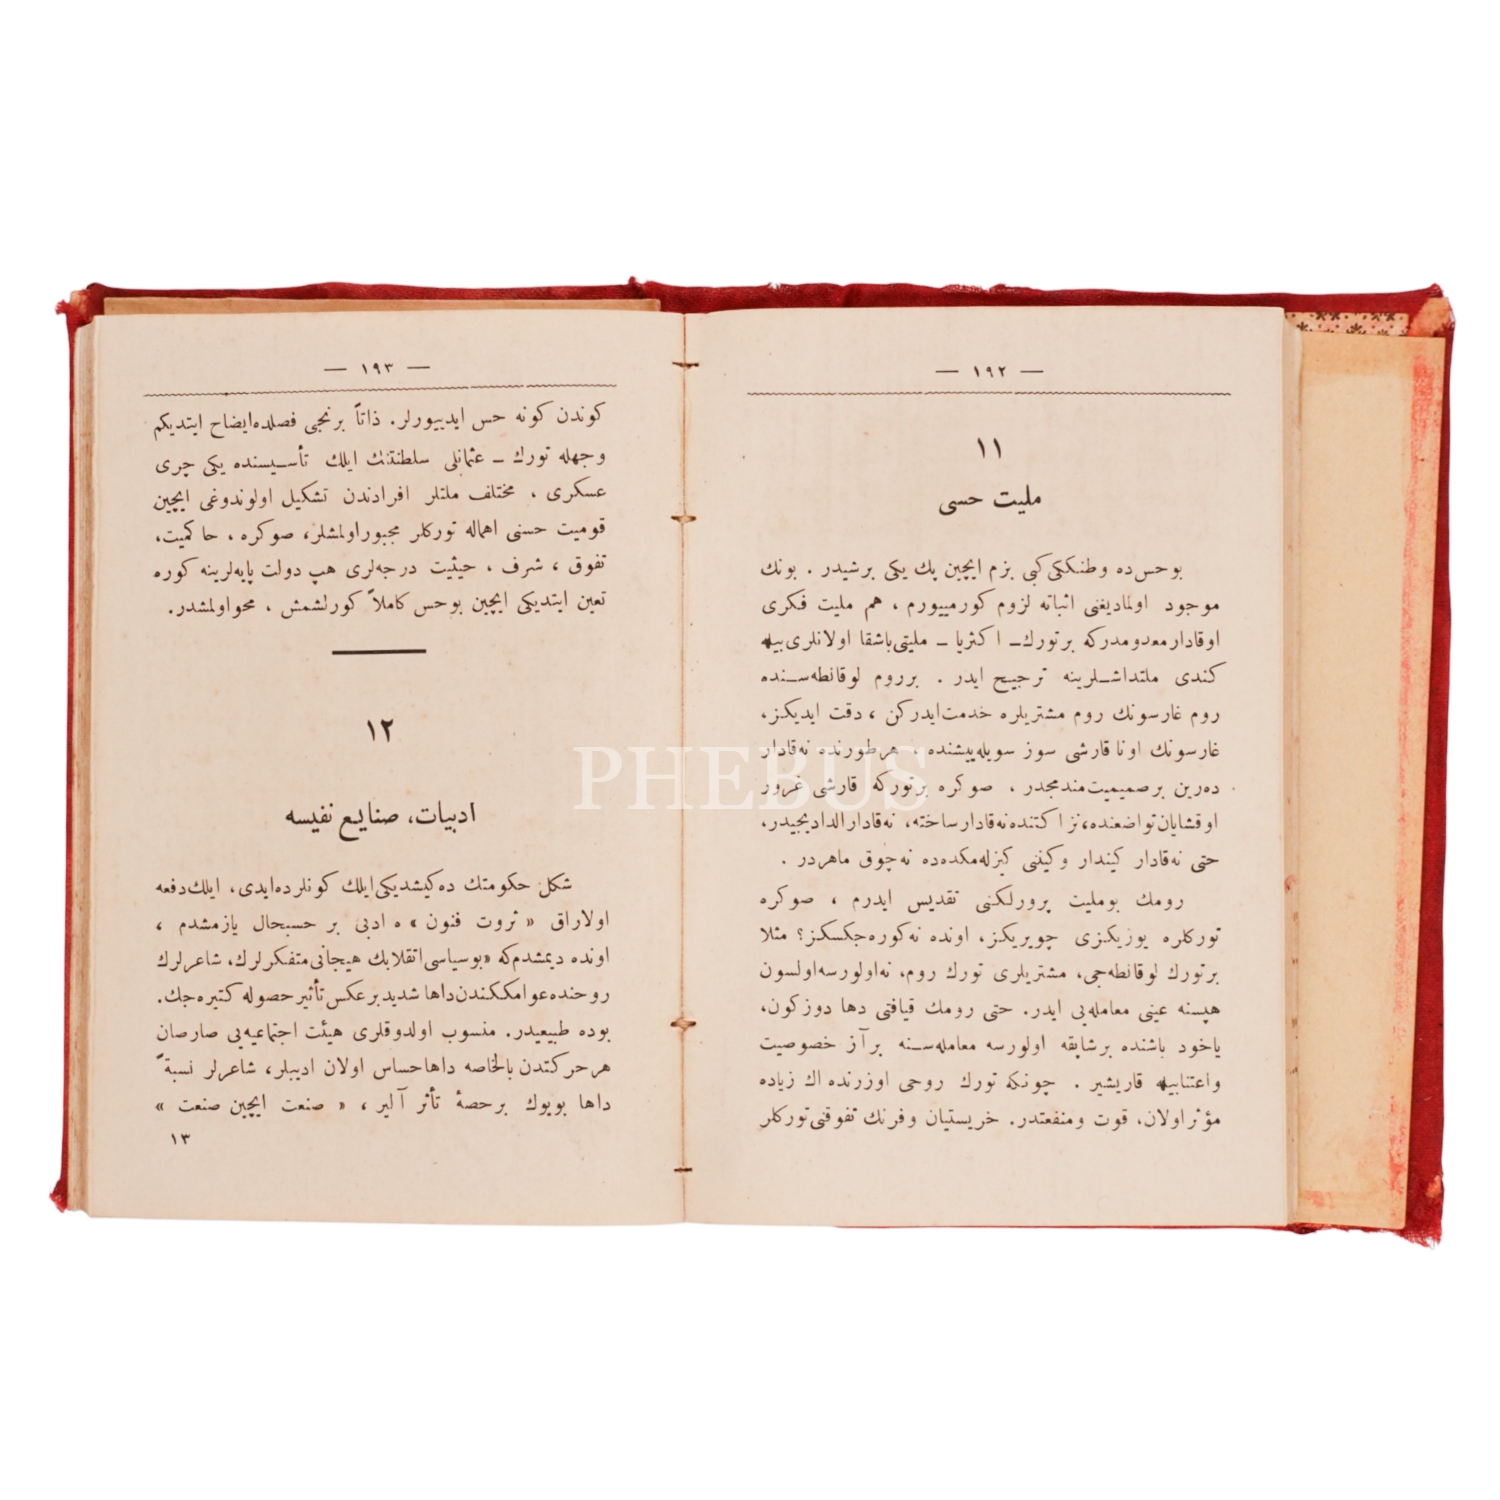 — ١٩٢ —
١١
ملیت حسی
بوحس‌ده وطنككی‌كبی بزم ایچین پك یكی برشیدر . بونك
موجود اولمادیغنی اثباته لزوم كورمییورم ، هم ملیت فكری
اوقادار معدومدركه برتورك ــ اكثریا ــ ملیتی‌باشقا اولانلری‌بیله
كندی ملتداشــلرینه ترجیح ایدر . برروم لوقانطه‌ســنده
روم غارسونك روم مشتریلره خدمت‌ایدركن ، دقت ایدیكز،
غارسونك اونا قارشی سوز سویله‌ییشنده ، هرطورنده نه‌قادار
ده‌رین برصمیمیت‌مندمجدر ، صوكره برتوركه قارشی غرور
اوقشایان‌تواضعنده،نزاكتنده‌نه‌قادارساخته، نه‌قادارالدادیجیدر،
حتی نه‌قادار كیندار وكیفنی كیزله‌مكده‌ده نه‌چوق ماهردر .
رومك بوملیت پرورلكنی تقدیس ایدرم ، صوكره
توركلره یوزیكزی چویریكز، اونده نه‌كوره‌جكسكز؟ مثلا
برتورك لوقانطه‌جی، مشتریلری تورك روم، نه‌اولورسه‌اولسون
هپسنه عینی معامله‌یی ایدر. حتی رومك قیافتی دها دوزكون،
یاخود باشنده برشاپقه اولورسه معامله‌ســنه برآز خصوصیت
واعتنابیله قاریشیر . چونكه تورك روحی اوزرنده اك زیاده
مؤثراولان، قوت ومنفعتدر. خریستیان وفرنك تفوقنی‌توركلر
— ١٩٣ —
كوندن كونه حس ایدییورلر. ذاتاً برنجی فصلده‌ایضاح ایتدیكم
وجهله تورك ــ عثمانلی سلطنتنك ایلك تأســیسنده یكی چری
عسكری ، مختلف ملتلر افرادندن تشكیل اولوندوغی ایچین
قومیت حسنی اهماله توركلر مجبوراولمشلر، صوكره ، حاكمیت،
تفوق ، شرف ، حیثیت درجه‌لری هپ دولت پایه‌لرینه كوره
تعین ایتدیكی ایچین بوحس كاملاً كورلشمش ، محواولمشدر.
١٢
ادبیات، صنایع نفیسه
شكل حكومتك ده‌كیشدیكی‌ایلك كونلرده‌ایدی، ایلك‌دفعه
اولاراق « ثروت فنون » ه ادبی بر حسبحال یازمشدم ،
اونده دیمشدم‌كه «بوسیاسی‌انقلابك هیجانی‌متفكرلرك، شاعرلرك
روحنده‌عوامككندن‌داها شدیدبرعكس‌تأثیرحصوله كتیره‌جك.
بوده طبیعیدر. منسوب اولدوقلری هیئت اجتماعیه‌یی صارصان
هرحركتدن بالخاصه داهاحساس اولان ادیبلر، شاعرلر نسبةً
داها بویوك برحصهٔ تأثر آلیر ، « صنعت ایچین صنعت »
١٣
PHEBUS